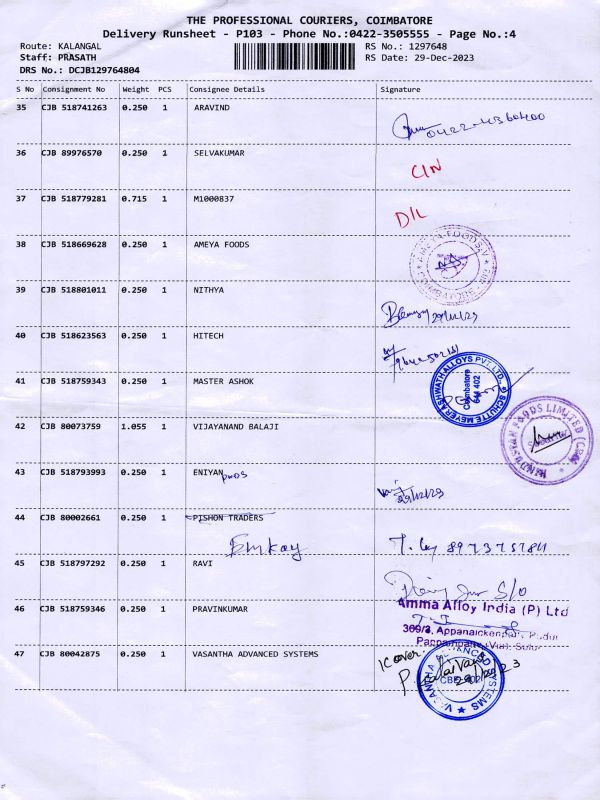 THE PROFESSIONAL COURIERS, COIMBATORE
Delivery Runsheet - P103 - Phone No.:0422-3505555 - Page No.:4
Route: KALANGAL RS No.: 1297648
Staff: PRASATH RS Date: 29-Dec-2023
DRS No.: DCJB129764804
S No Consignment No Weight PCS Consignee Details Signature
35 CJB 518741263 0.250 1 ARAVIND
36 CJB 89976570 0.250 1 SELVAKUMAR
37 CJB 518779281 0.715 1 M1000837
D/L
38 CJB 518669628 0.250 1 AMEYA FOODS
COIMBATORE
39 CJB 518801011 0.250 1 NITHYA
29/12/23
40 CJB 518623563 0.250 1 HITECH
41 CJB 518759343 0.250 1 MASTER ASHOK
SCHUTTE MEYER ASHWATH ALLOYS PVT. LTD.,
Coimbatore
641 402
42 CJB 80073759 1.055 1 VIJAYANAND BALAJI
HINDUSTAN FOODS LIMITED (CBM)
43 CJB 518793993 0.250 1 ENIYAN
29/12/23
44 CJB 80002661 0.250 1 PISHON TRADERS
Emkay
45 CJB 518797292 0.250 1 RAVI
S/O
Amma Alloy India (P) Ltd
46 CJB 518759346 0.250 1 PRAVINKUMAR
309/3, Appanaickenpatti Pudur
Pappampatti (Via), Sulur
47 CJB 80042875 0.250 1 VASANTHA ADVANCED SYSTEMS
1 Cover
VASANTHA ADVANCED SYSTEMS